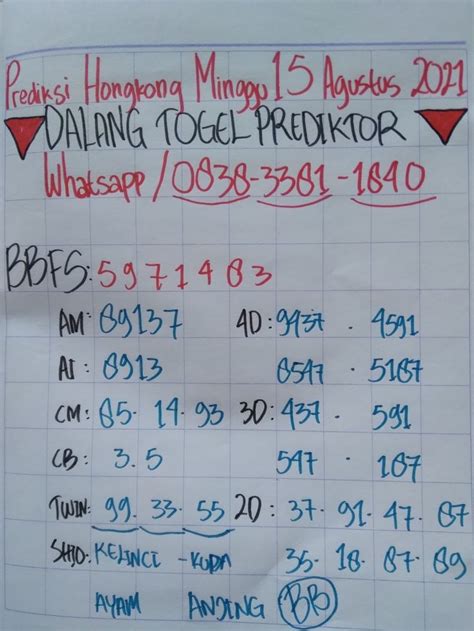 Prediksi Hongkong Minggu 15 Agustus 2021
DALANG TOGEL PREDIKTOR
Whatsapp / 0838-3381-1840
BBFS: 5 9 7 1 4 8 3
AM: 89137 4D: 9437 · 4591
AI: 8913 8547 · 5187
CM: 85· 14· 93 3D: 437 · 591
CB: 3. 5 547 · 187
TWIN: 99. 33. 55 2D: 37· 91· 47· 87
SHIO: KELINCI - KUDA 35· 18· 87· 89
AYAM ANJING BB